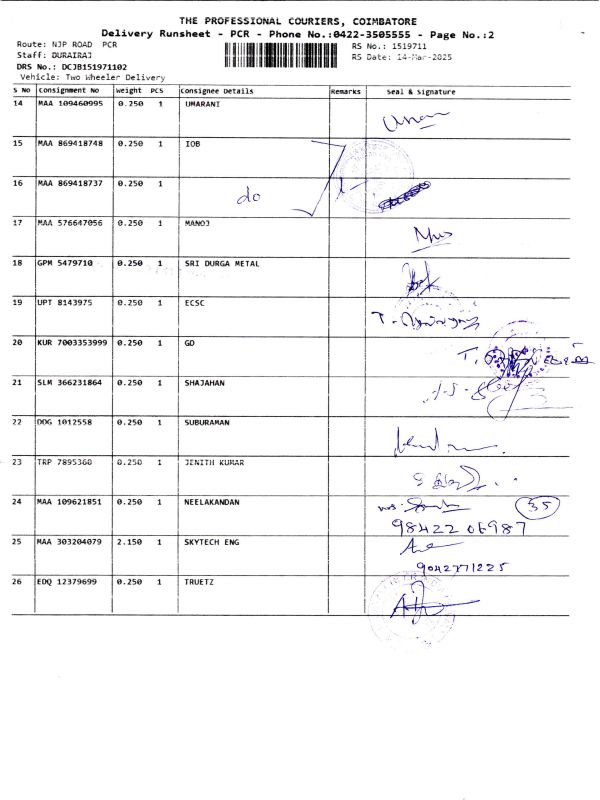 THE PROFESSIONAL COURIERS, COIMBATORE
Delivery Runsheet - PCR - Phone No.:0422-3505555 - Page No.:2
Route: NJP ROAD PCR
RS No.: 1519711
Staff: DURAIRAJ
RS Date: 14-Mar-2025
DRS No.: DCJB151971102
Vehicle: Two Wheeler Delivery
S No Consignment No Weight PCS Consignee Details Remarks Seal & Signature
14 MAA 109460995 0.250 1 UMARANI
15 MAA 869418748 0.250 1 IOB
16 MAA 869418737 0.250 1 do
17 MAA 576647056 0.250 1 MANOJ
18 GPM 5479710 0.250 1 SRI DURGA METAL
19 UPT 8143975 0.250 1 ECSC
20 KUR 7003353999 0.250 1 GD
21 SLM 366231864 0.250 1 SHAJAHAN
22 DDG 1012558 0.250 1 SUBURAMAN
23 TRP 7895360 0.250 1 JENITH KUMAR
24 MAA 109621851 0.250 1 NEELAKANDAN 35
98422 06987
25 MAA 303204079 2.150 1 SKYTECH ENG
9042771225
26 EDQ 12379699 0.250 1 TRUETZ